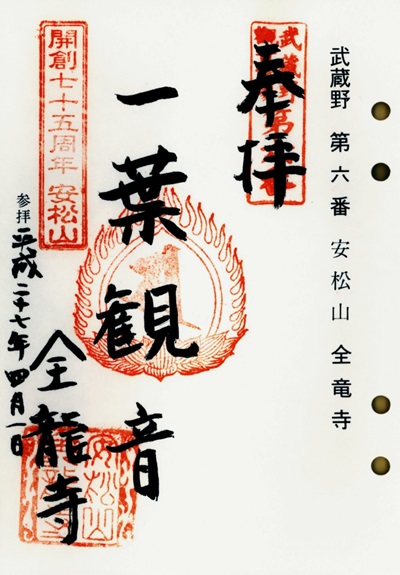 武蔵野 第六番 安松山 全竜寺
奉拝
一葉観音
開創七十五周年 安松山
参拝 平成二十七年四月一日
全龍寺
安松山